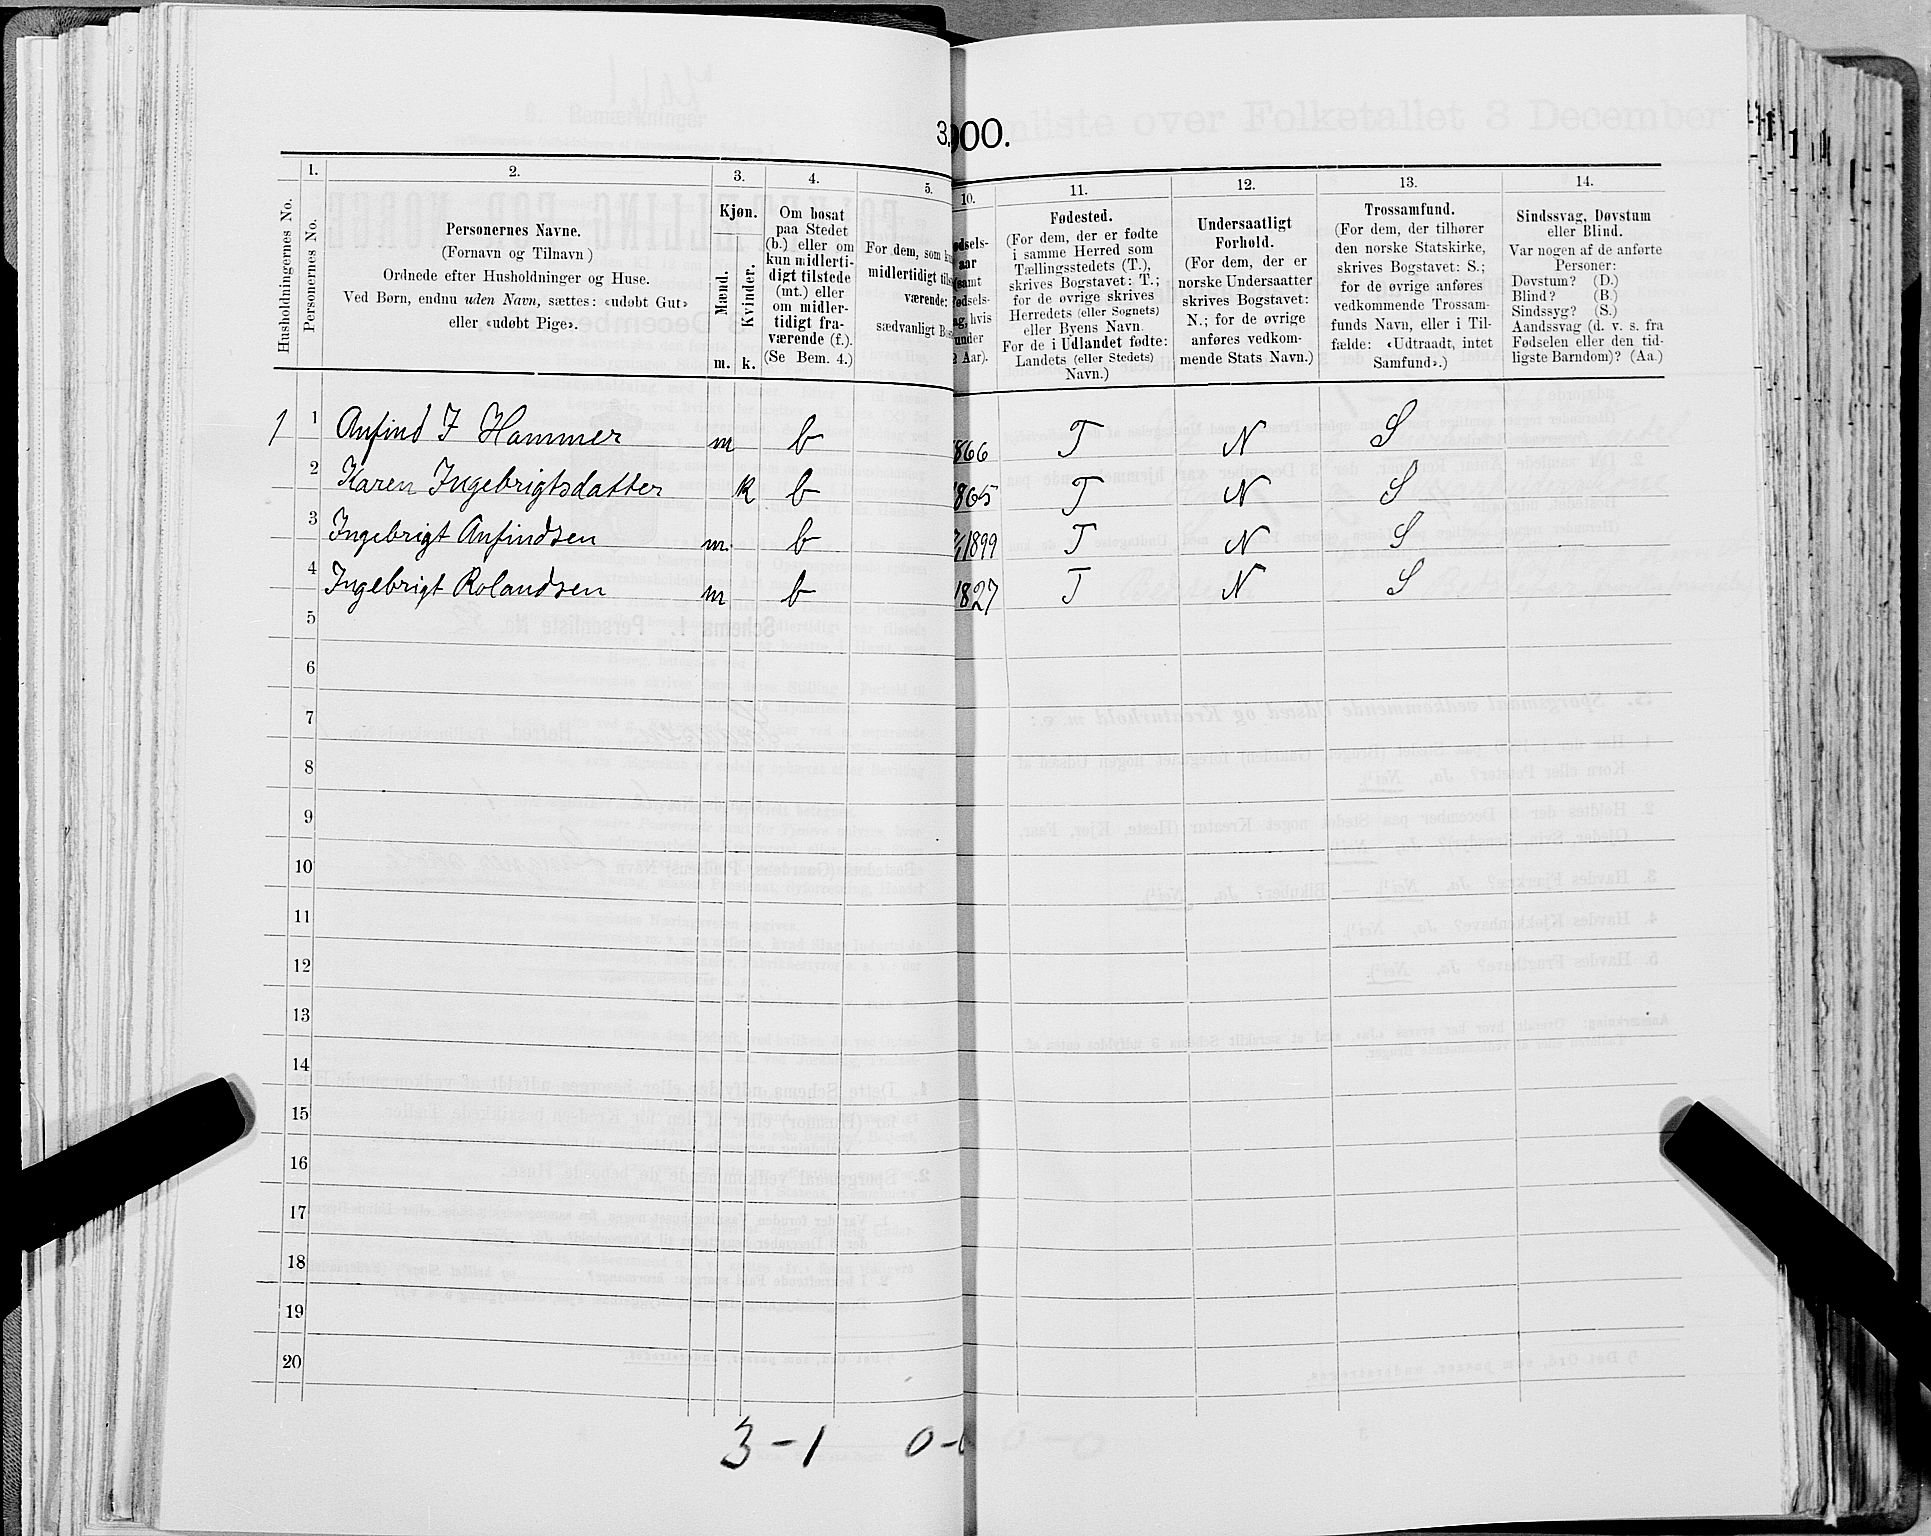 3. 900.
1. 2. 3. 4. 5. 10. 11. 12. 13. 14.
Husholdningernes No.
Personernes No.
Personernes Navne.
(Fornavn og Tilnavn)
Ordnede efter Husholdninger og Huse.
Ved Børn, endnu uden Navn, sættes: «udøbt Gut»
eller «udøbt Pige».
Kjøn.
Mænd.
Kvinder.
m. k.
Om bosat
paa Stedet
(b.) eller om
kun midlerti-
digt tilstede
(mt.) eller
om midler-
tidigt fra-
værende (f.).
(Se Bem. 4.)
For dem, som
midlertidigt
værende:
sædvanligt
Fødested.
(For dem, der er fødte
i samme Herred som
Tællingsstedets (T.),
skrives Bogstavet: T.;
for de øvrige skrives
Herredets (eller Sognets)
eller Byens Navn.
For de i Udlandet fødte:
Landets (eller Stedets)
Navn.)
Undersaatligt
Forhold.
(For dem, der er
norske Undersaatter
skrives Bogstavet:
N.; for de øvrige
anføres vedkom-
mende Stats Navn.)
Trossamfund.
(For dem, der tilhører
den norske Statskirke,
skrives Bogstavet: S.;
for de øvrige anføres
vedkommende Trossam-
funds Navn, eller i Til-
fælde: «Udtraadt, intet
Samfund».)
Sindssvag, Døvstum
eller Blind.
Var nogen af de anførte
Personer:
Døvstum? (D.)
Blind? (B.)
Sindssyg? (S.)
Aandssvag (d. v. s. fra
Fødselen eller den tid-
ligste Barndom)? (Aa.)
1 1 Anfind I Hammer m b 1866 T N S
2 Karen Ingebrigtsdatter k b 1865 T N S
3 Ingebrigt Anfindsen m. b 1899 T N S
4 Ingebrigt Rolandsen m b 1827 T N S
5
6
7
8
9
10
11
12
13
14
15
16
17
18
19
20
3-1 0-